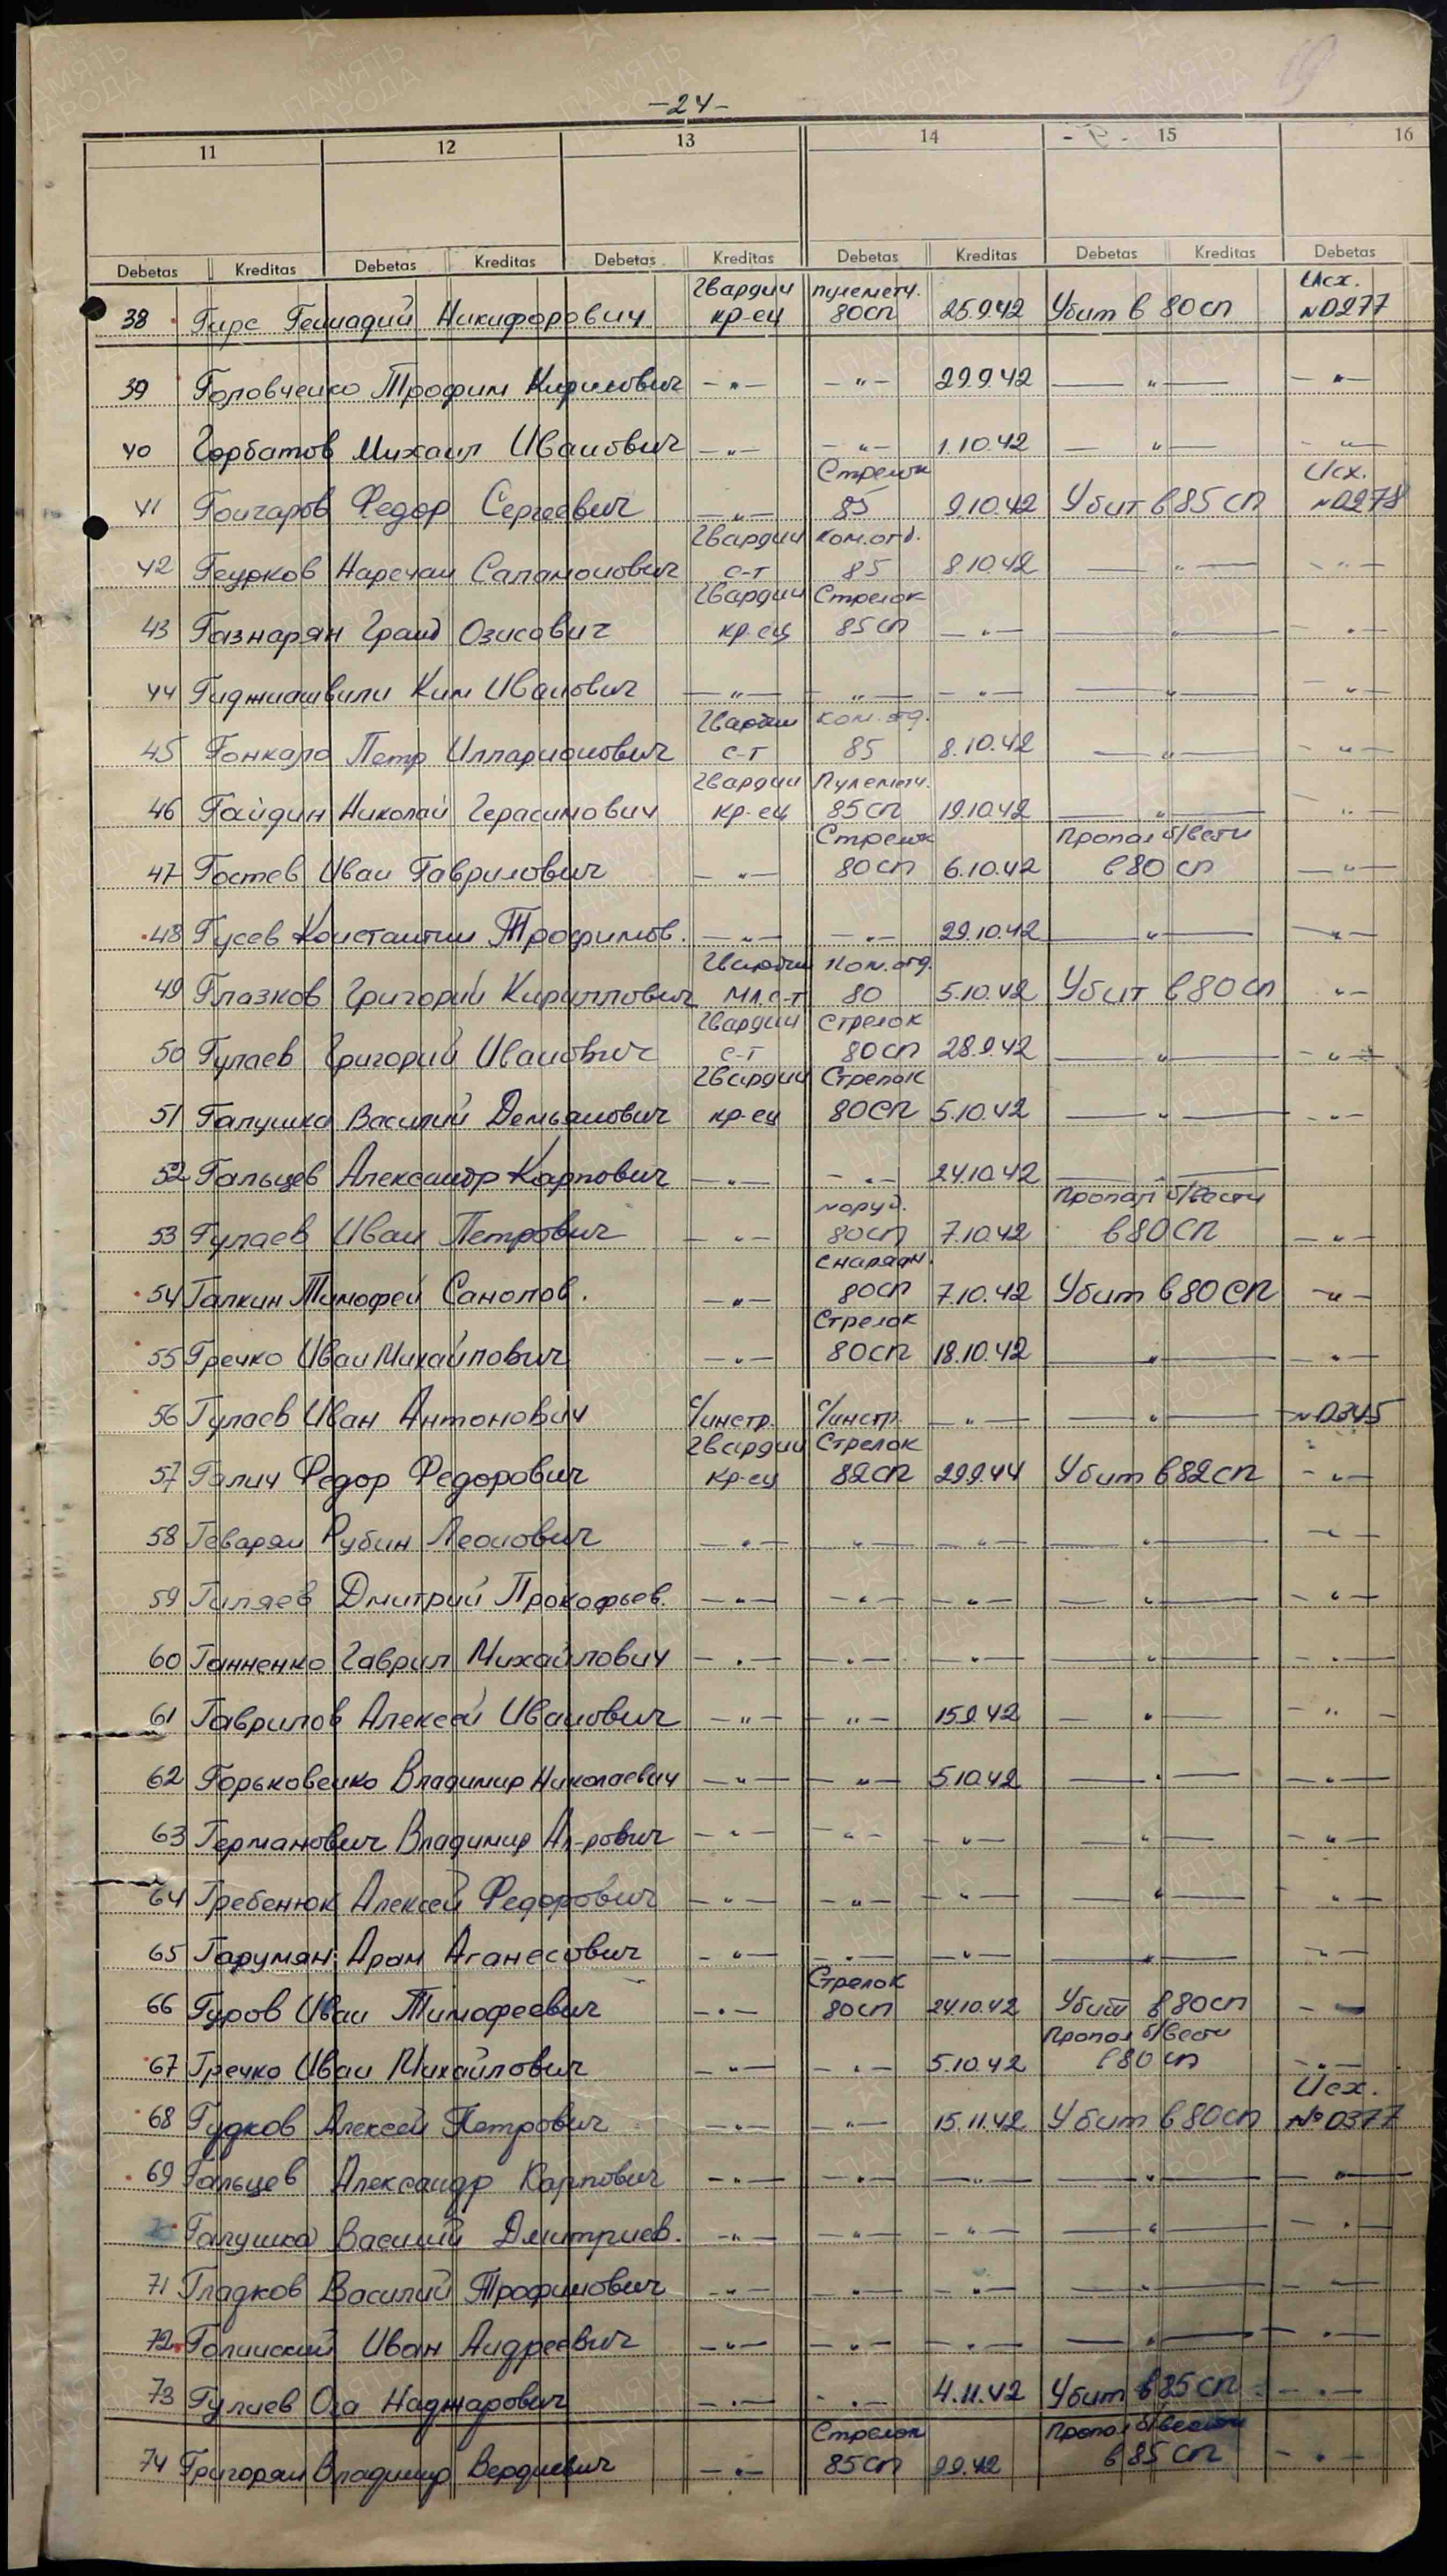 -24-
11 12 13 14 15 16
Debetas Kreditas Debetas Kreditas Debetas Kreditas Debetas Kreditas Debetas Kreditas Debetas
Гвардии пулеметч. Исх.
38 Гирс Геннадий Никифорович кр-ец 80сп 25.9.42 Убит в 80 сп №0277
39 Головченко Трофим Кирилович —"— —"— 29.9.42 —"— —"—
40 Горбатов Михаил Иванович —"— —"— 1.10.42 —"— —"—
Стрелок Исх.
41 Гончаров Федор Сергеевич —"— 85 9.10.42 Убит в 85 сп №0278
Гвардии ком.отд.
42 Геурков Наречан Саламонович с-т 85 8.10.42 —"— —"—
Гвардии Стрелок
43 Газнарян Гранд Озисович кр.ец 85сп —"— —"— —"—
44 Гиджиашвили Ким Иванович —"— —"— —"— —"— —"—
Гвардии ком.отд.
45 Гонкало Петр Илларионович с-т 85 8.10.42 —"— —"—
Гвардии Пулеметч.
46 Гайдин Николай Герасимович кр-ец 85сп 19.10.42 —"— —"—
Стрелок Пропал б/вести
47 Гостев Иван Гаврилович —"— 80сп 6.10.42 в 80 сп —"—
48 Гусев Константин Трофимов. —"— —"— 29.10.42 —"— —"—
Гвардии Ком.отд.
49 Глазков Григорий Кириллович мл.с-т 80 5.10.42 Убит в 80 сп —"—
Гвардии Стрелок
50 Гулаев Григорий Иванович с-т 80сп 28.9.42 —"— —"—
Гвардии Стрелок
51 Галушка Василий Демьянович кр-ец 80сп 5.10.42 —"— —"—
52 Гальцев Александр Карпович —"— —"— 24.10.42 —"—
Пропал б/вести
53 Гулаев Иван Петрович —"— 80сп 7.10.42 в 80 сп —"—
снарядн.
54 Галкин Тимофей Санолов. —"— 80сп 7.10.42 Убит в 80 сп —"—
Стрелок
55 Гречко Иван Михайлович —"— 80сп 18.10.42 —"— —"—
56 Гулаев Иван Антонович с/инстр. с/инстр. —"— —"— №0345
Гвардии Стрелок
57 Галич Федор Федорович кр-ец 82сп 29.9.44 Убит в 82сп —"—
58 Геварян Рубин Леонович —"— —"— —"— —"— —"—
59 Гиляев Дмитрий Прокофьев. —"— —"— —"— —"— —"—
60 Ганненко Гаврил Михайлович —"— —"— —"— —"— —"—
61 Гаврилов Алексей Иванович —"— —"— 15.9.42 —"— —"—
62 Горьковенко Владимир Николаевич —"— —"— 5.10.42 —"— —"—
63 Германович Владимир Ал-рович —"— —"— —"— —"— —"—
64 Гребенюк Алексей Федорович —"— —"— —"— —"— —"—
65 Гарумян Арам Аганесович —"— —"— —"— —"— —"—
Стрелок
66 Гуров Иван Тимофеевич —"— 80сп 24.10.42 Убит в 80сп —"—
Пропал б/вести
67 Гречко Иван Михайлович —"— —"— 5.10.42 в 80 сп —"—
Исх.
68 Гудков Алексей Петрович —"— —"— 15.11.42 Убит в 80сп №0377
69 Гальцев Александр Карпович —"— —"— —"— —"— —"—
Галушка Василий Дмитриев. —"— —"— —"— —"— —"—
71 Гладков Василий Трофимович —"— —"— —"— —"— —"—
72 Голинский Иван Андреевич —"— —"— —"— —"— —"—
73 Гулиев Ога Наджарович —"— —"— 4.11.42 Убит в 85 сп —"—
Стрелок Пропал б/вести
74 Григорян Владимир Вердиевич —"— 85сп 9.9.42 в 85 сп —"—